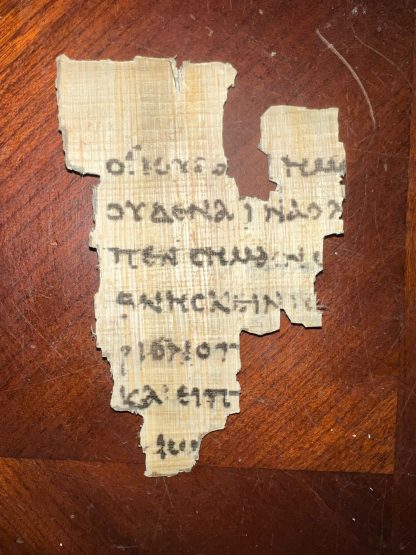 ΟΪ ΙΟΥΔΑ ΗΜΕ
ΟΥΔΕΝΑ ΙΝΑ Ο Λ
ΠΕΝ CΗΜΑΙΝ
ΘΝΗCΚΕΙΝ ΙC
ΡΙΟΝ Ο Π
ΚΑΙ ΕΙΠ